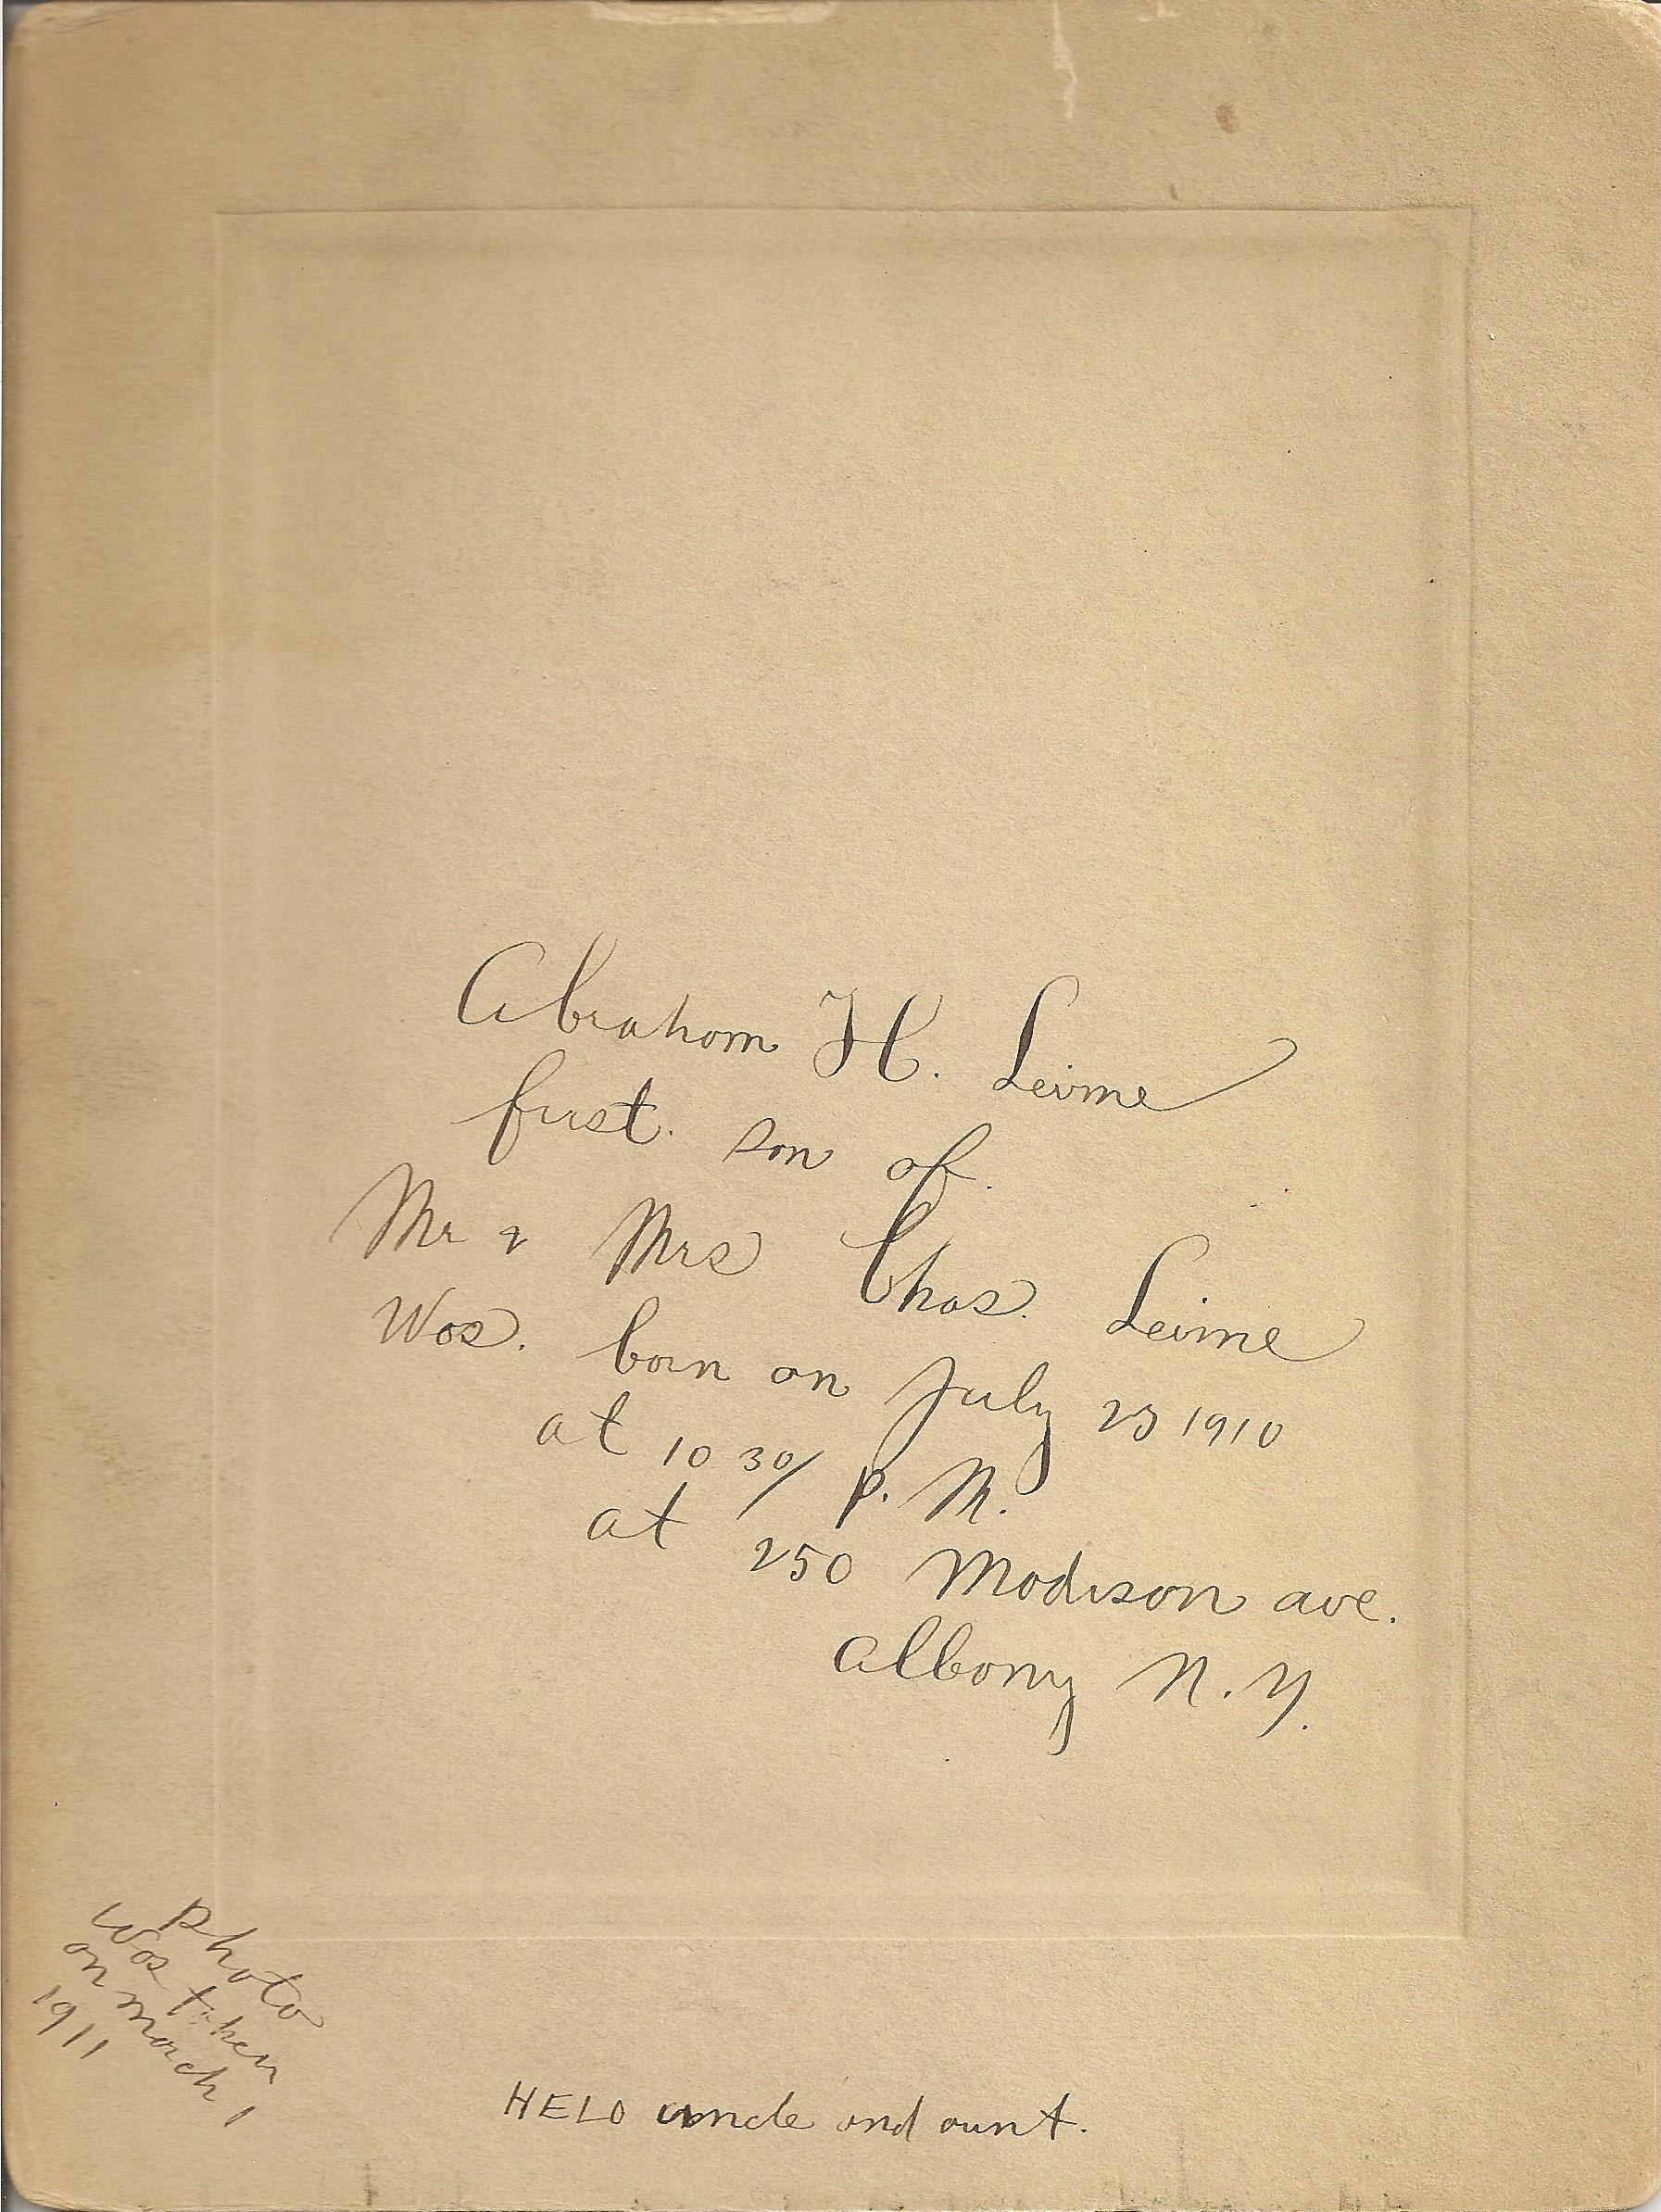 Abraham H. Levine
first. son of.
Mr & Mrs Chas. Levine
Was. born on July 23 1910
at 10 30/ P. M.
at 250 Madison ave.
Albany N. Y.
Photo
Was taken
on March 1
1911
HELO uncle and aunt.